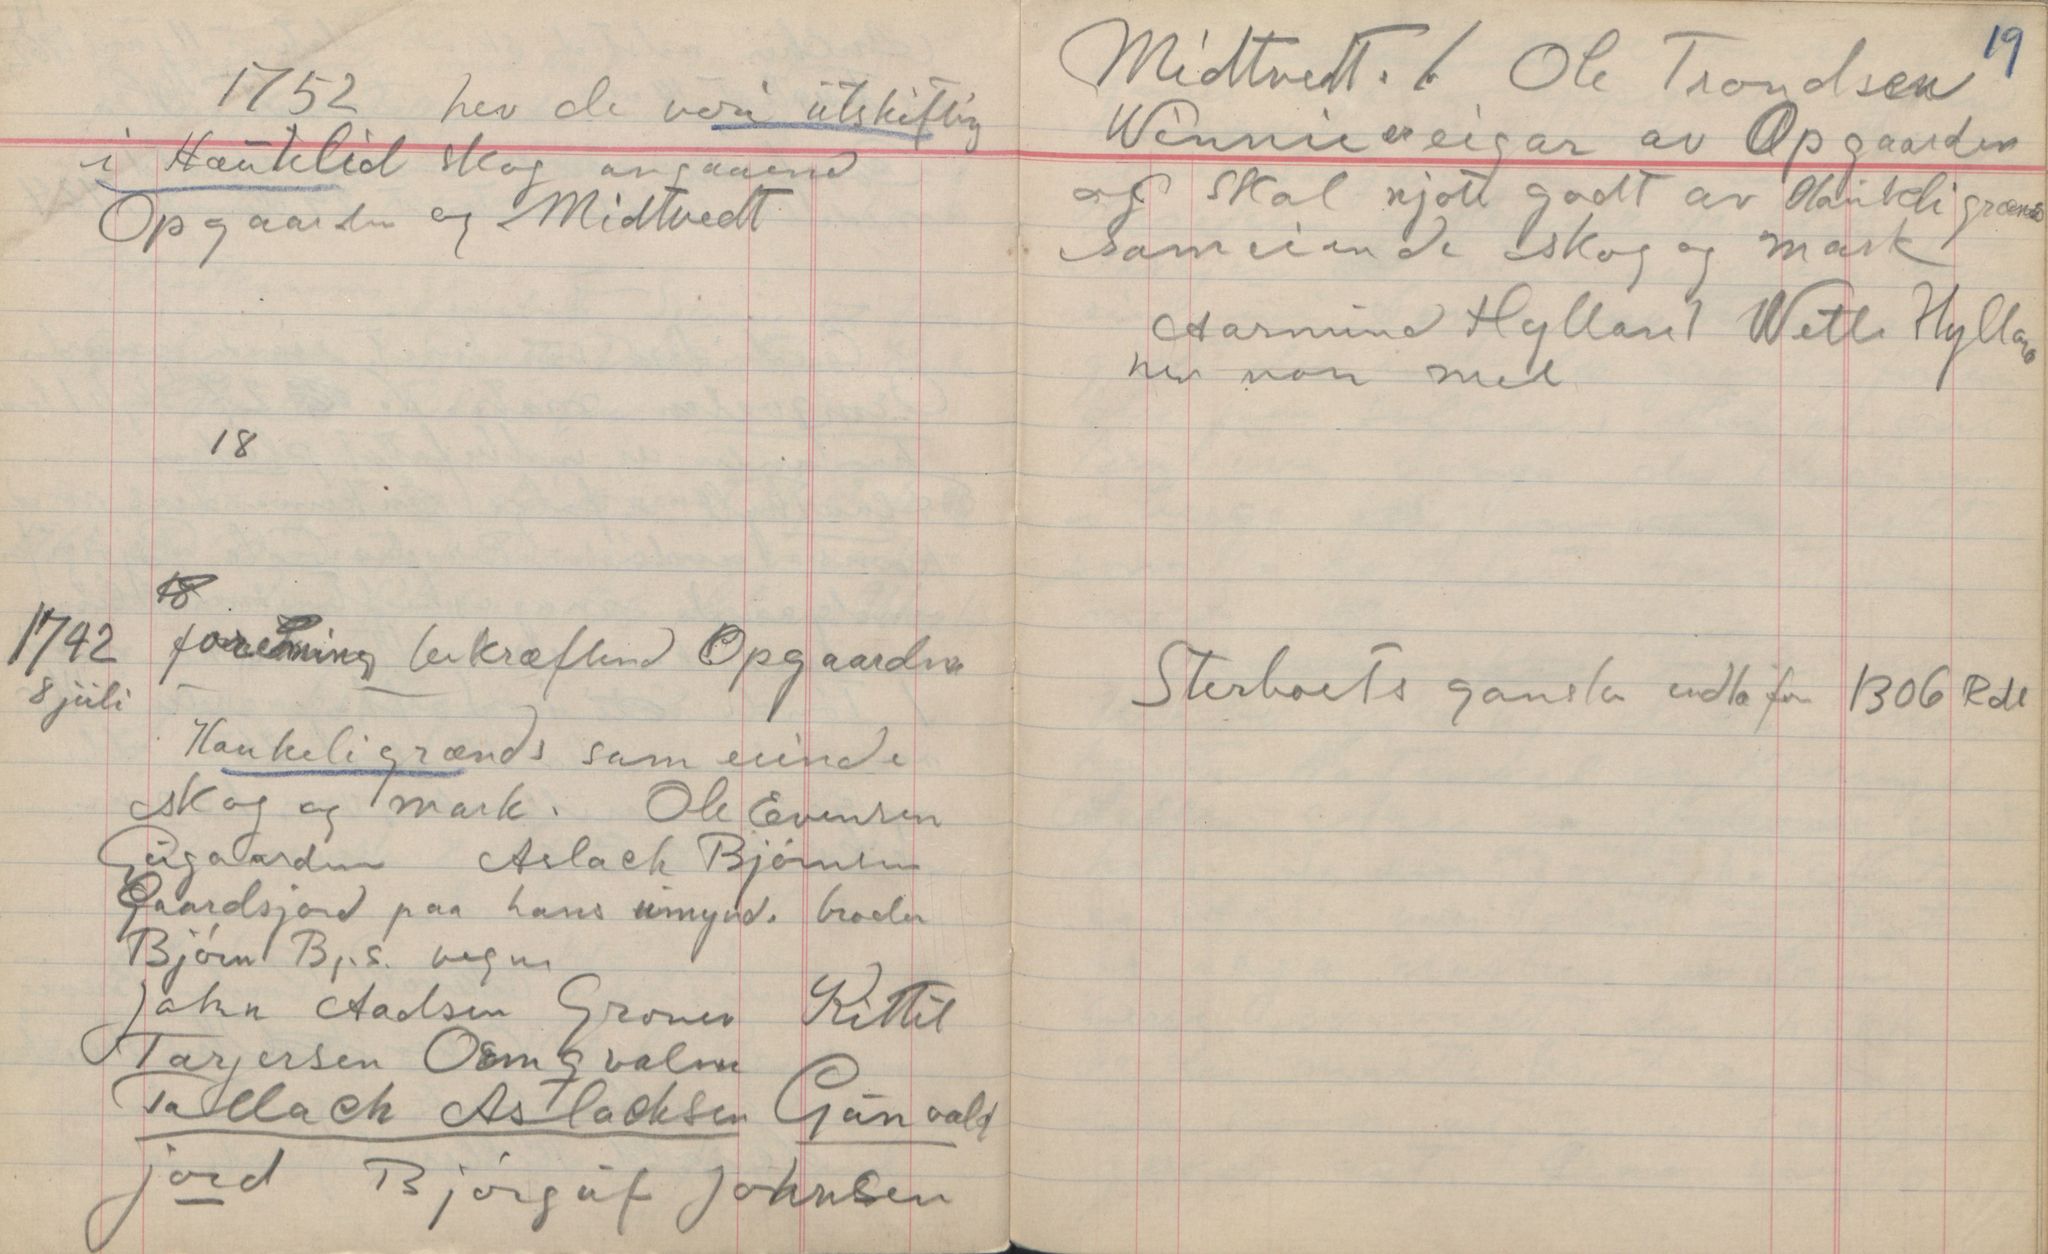 1752 hev de veri ütskifting
i Haükelid skog angaaend
Opgaarden og Midtvedt
18
18
1742 foretning bekræftend Opgaarden
8 jüli
Haukeligrænds sameiinde
skog og mark. Ole Evensen
Aslack Bjørnsen
Gaardsjord paa hans ümynd. broder
Bjørn B.j.s. vegne
John Aadsen Groven Kittil
Tarjersen
Tallach Aslacksen Günvald
jord Bjørgüf Johnsen
19
Midtvedt. / Ole Trondsen
Winnie er eigar av Opgaarden
og skal njote godt av Haukeligrænds
sameiende skog og mark
Aarmund Hylland Wetle Hylland
hev vore med
Sterboets ganske endte for 1306 Rdl